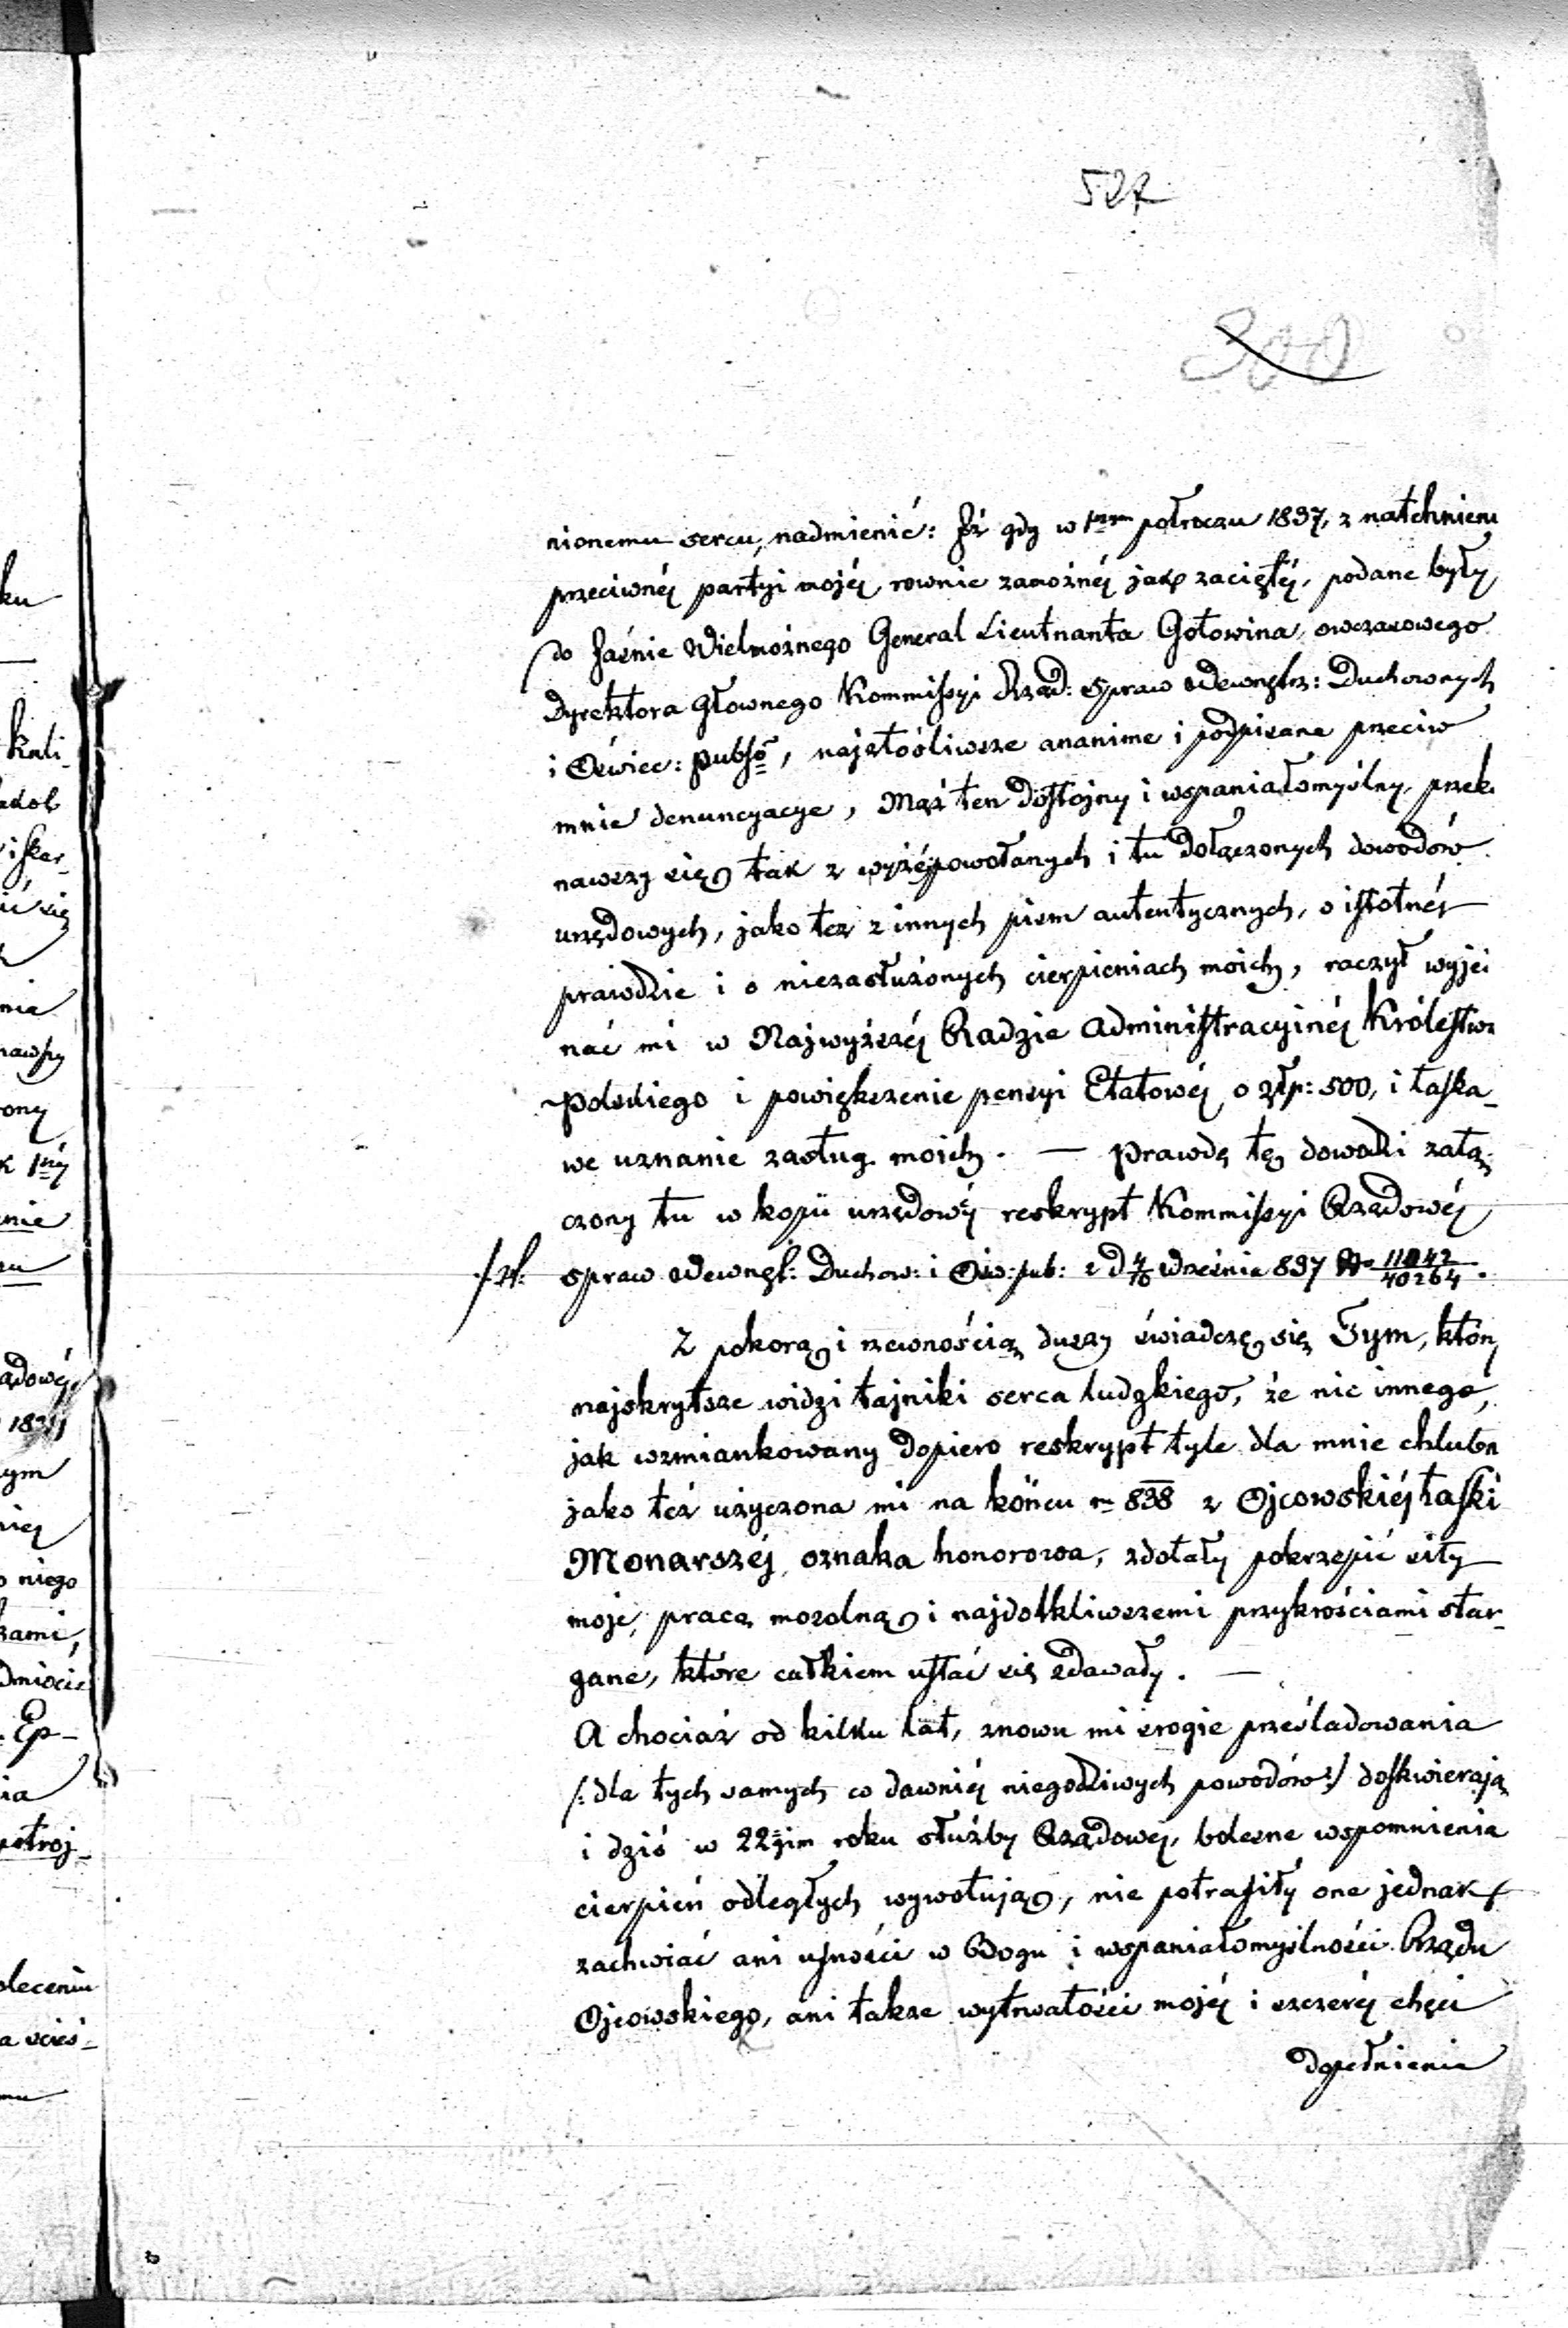 527
300
nionemu sercu, nadmienić: Iż gdy w 1szym połroczu 1837, z natchnienia
przeciwnéj partyi mojéj, rownie zamożnéj jak zaciętéj, podane były
do Jaśnie Wielmożnego General Lieutnanta Gołowina, owczasowego
Dyrektora Głownego Kommissyi Rząd: Spraw Wewnętrz: Duchownych
i Oświec: publ:, najzłośliwsze ananime i podpisane przeciw
mnie denuncyacye, Mąż ten dostojny i wspaniałomyślny, przeko
nawszy się tak z wyżéjpowołanych i tu dołączonych dowodów
urzędowych, jako tez z innych pism autentycznych, o istotnéj
prawdzie i o niezasłużonych cierpieniach moich, raczył wyjed
nać mi w Najwyższéj Radzie Administracyinéj Królestwa
Polskiego i powiększenie pensyi Etatowéj o złp: 500, i łaska-
we uznanie zasług moich. — Prawdę tę dowodzi załą-
czony tu w kopii urzędowéj reskrypt Kommissyi Rządowéj
Spraw Wewnęt: Duchow: i Ośw: pub: z d 4/16 Września 837 No 11042/40264.
Z pokorą i rzewnością duszy świadczę się Tym, który
najskrytsze widzi tajniki serca ludzkiego, że nic innego,
jak wzmiankowany dopiero reskrypt tyle dla mnie chlubny
jako też użyczona mi na końcu r. 838 z Ojcowskiéj łaski
Monarszéj, oznaka honorowa, zdołały pokrzepić siły
moje, pracą mozolną i najdotkliwszemi przykrościami star-
gane, które całkiem ustać się zdawały. —
A chociaż od kilku lat, znowu mi srogie prześladowania
/: dla tych samych co dawniéj niegodziwych powodów :/ doskwierają
i dziś w 22gim roku służby Rządowej, bolesne wspomnienia
cierpień odległych wywołują, nie potrafiły one jednak
zachwiać ani ufności w Bogu i wspaniałomyślności Rządu
Ojcowskiego, ani takze wytrwałości mojéj i szczeréj chęci
dopełnienia